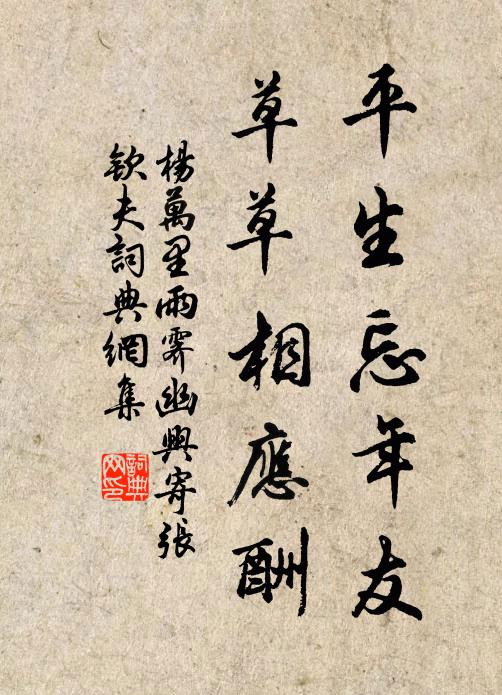 平生忘年友
草草相應酬
楊萬里雨霽幽興寄張
欽夫詞典網集
詞典
网印